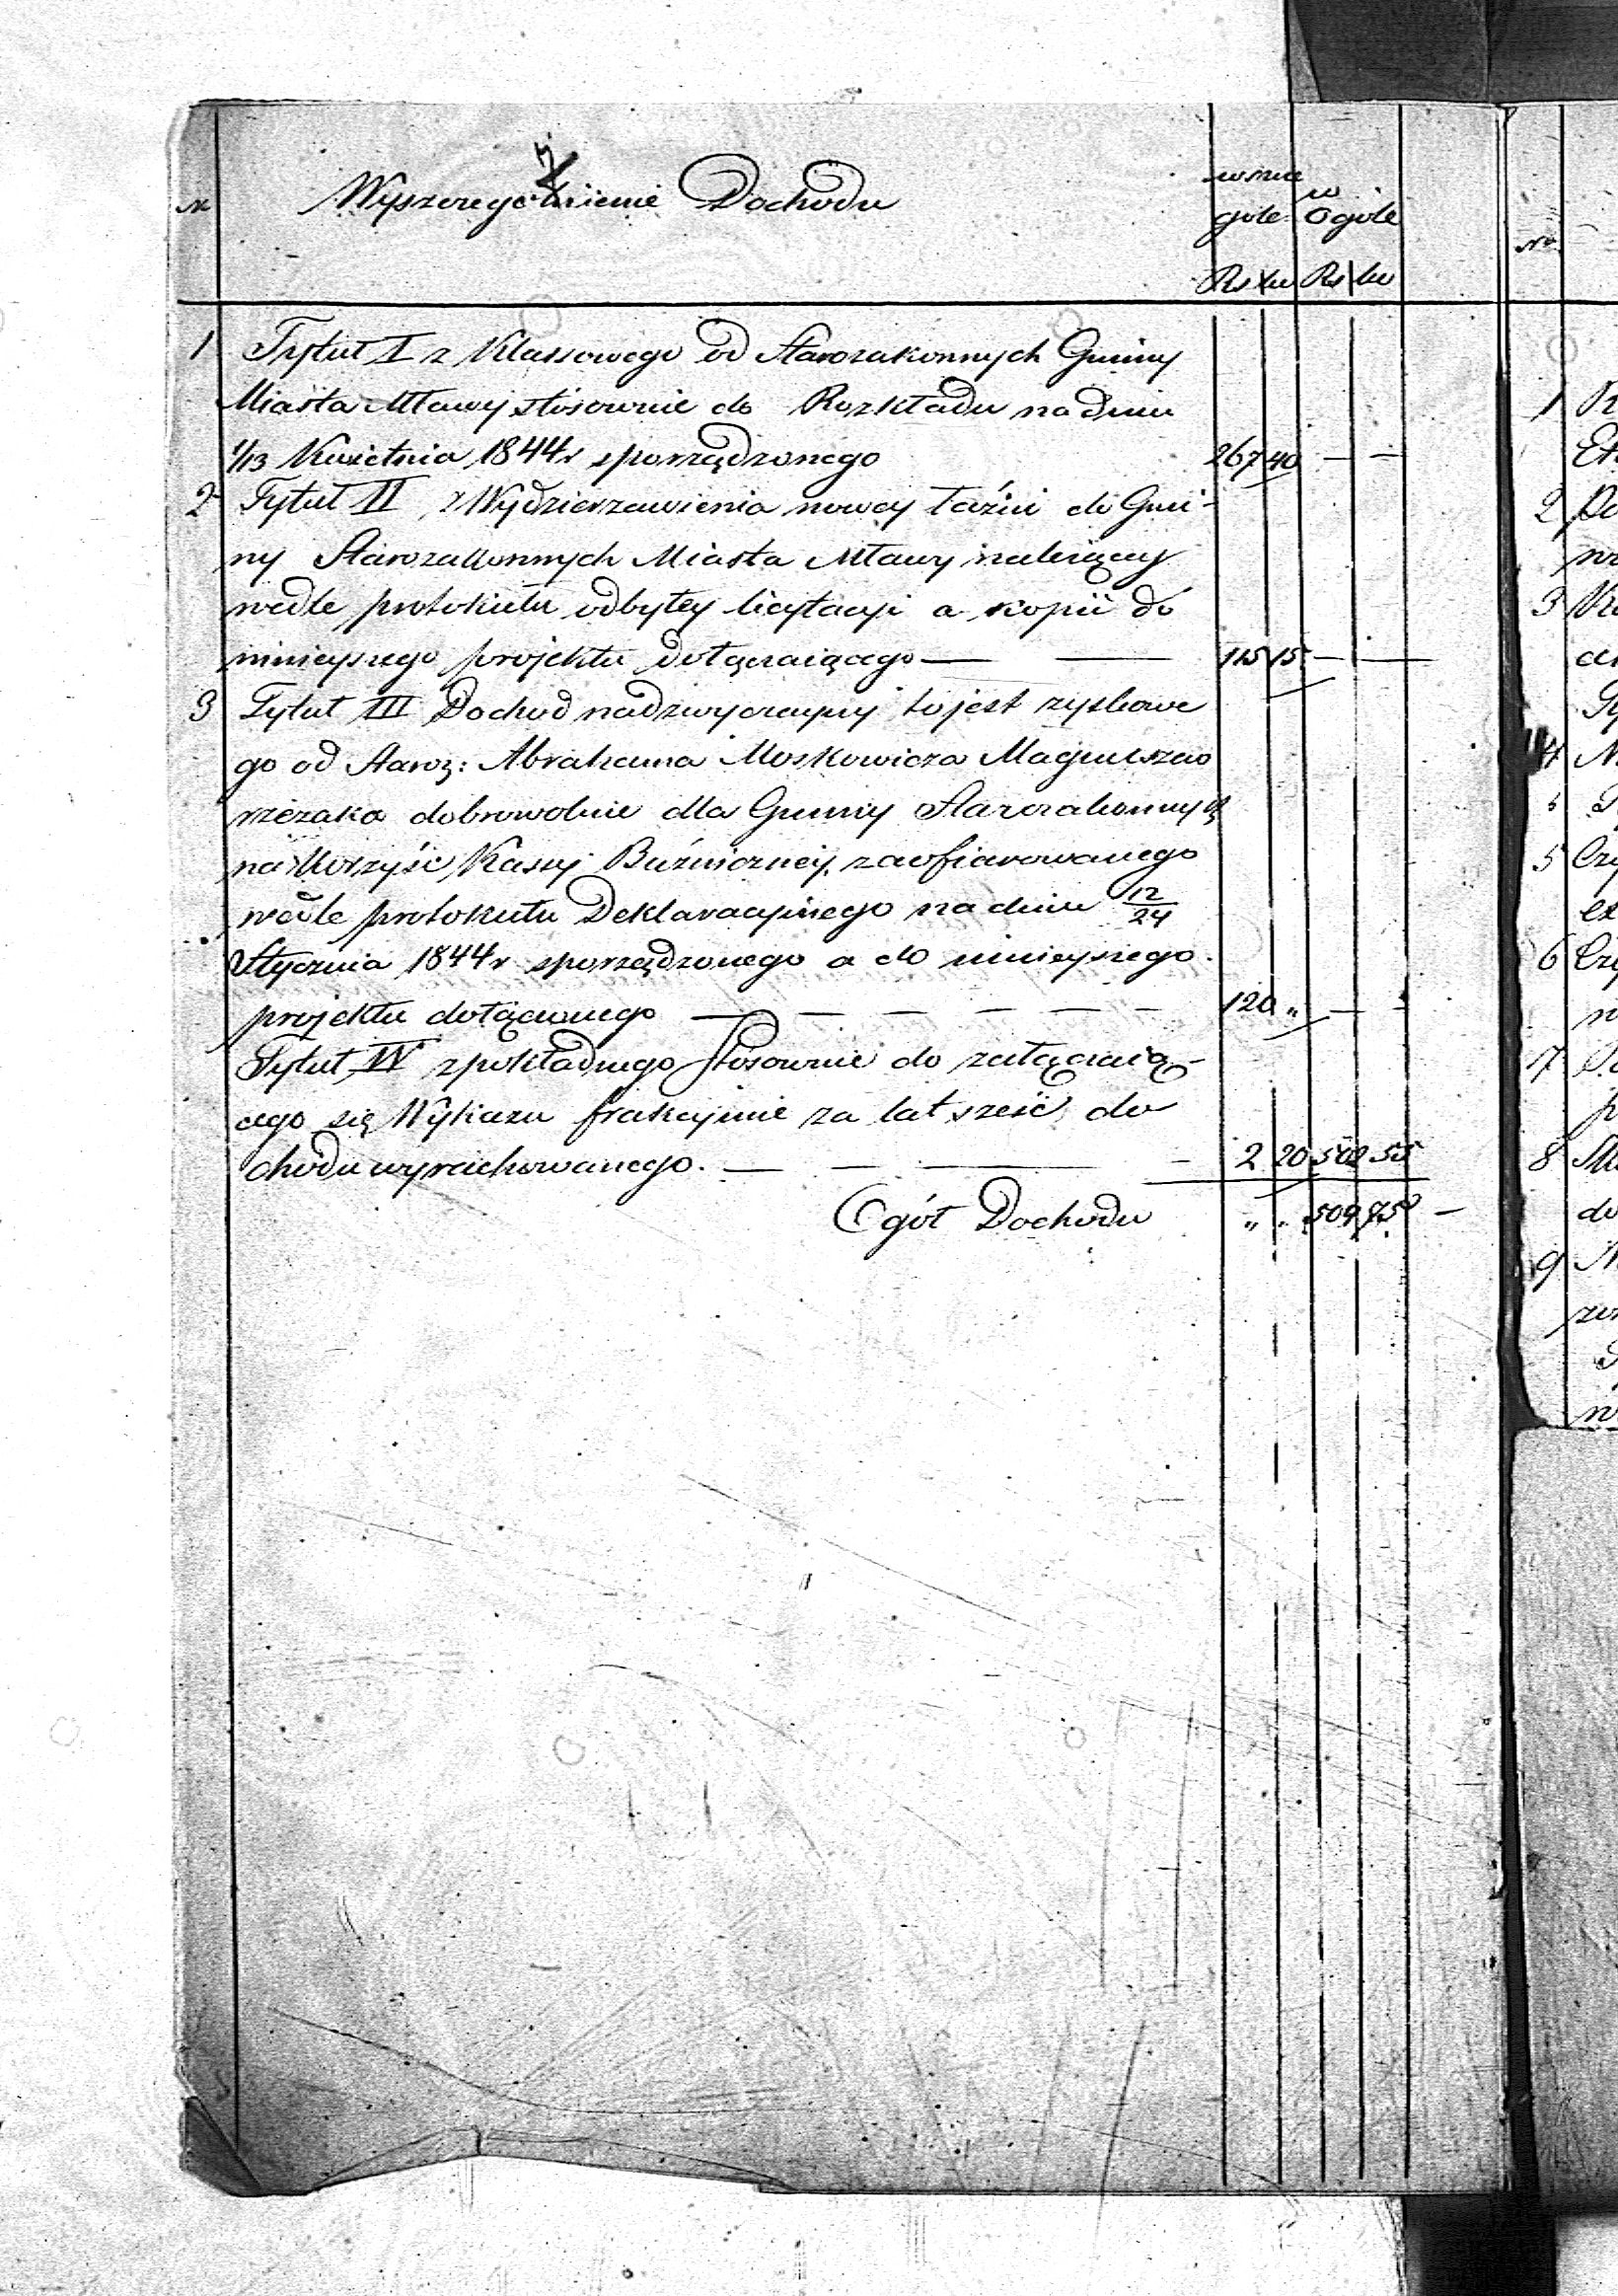 N Wyszczegółnienie Dochodu w szcze w
góle Ogóle
Rs ko Rs ko
1 Tytuł I z Klassowego od Starozakonnych Gminy
Miasta Mławy stosownie do Rozkładu na dniu
1/13 Kwietnia 1844 r sporządzonego 267 40 — —
2 Tytuł II z Wydzierzawienia nowey łaźni do Gmi-
ny Starozakonnych Miasta Mławy należącey
wedle protokułu odbytey licytacyi a kopii do
ninieyszego projektu dołączaiącego — — 115 15 — —
3 Tytuł III Dochod nadzwyczayny to jest zyskowe
go od Staroz: Abrahama Moskowicza
rzezaka dobrowolnie dla Gminy Starozakonnych
na Korzyść Kassy Bużniczney zaofiarowanego
wedle protokułu Deklaracyinego na dniu 12/24
Stycznia 1844 r sporządzonego a do ninieyszego
projektu dołączonego — — — — — — 120 „ — —
Tytuł IV z pokładnego stosownie do załączaią-
cego się Wykazu frakcyinie za lat sześć do
chodu wyrachowanego. — — — — 2 20 502 55
Ogół Dochodu „ „ 509 75 —
N°
1
2
3
4
5
6
7
8
9